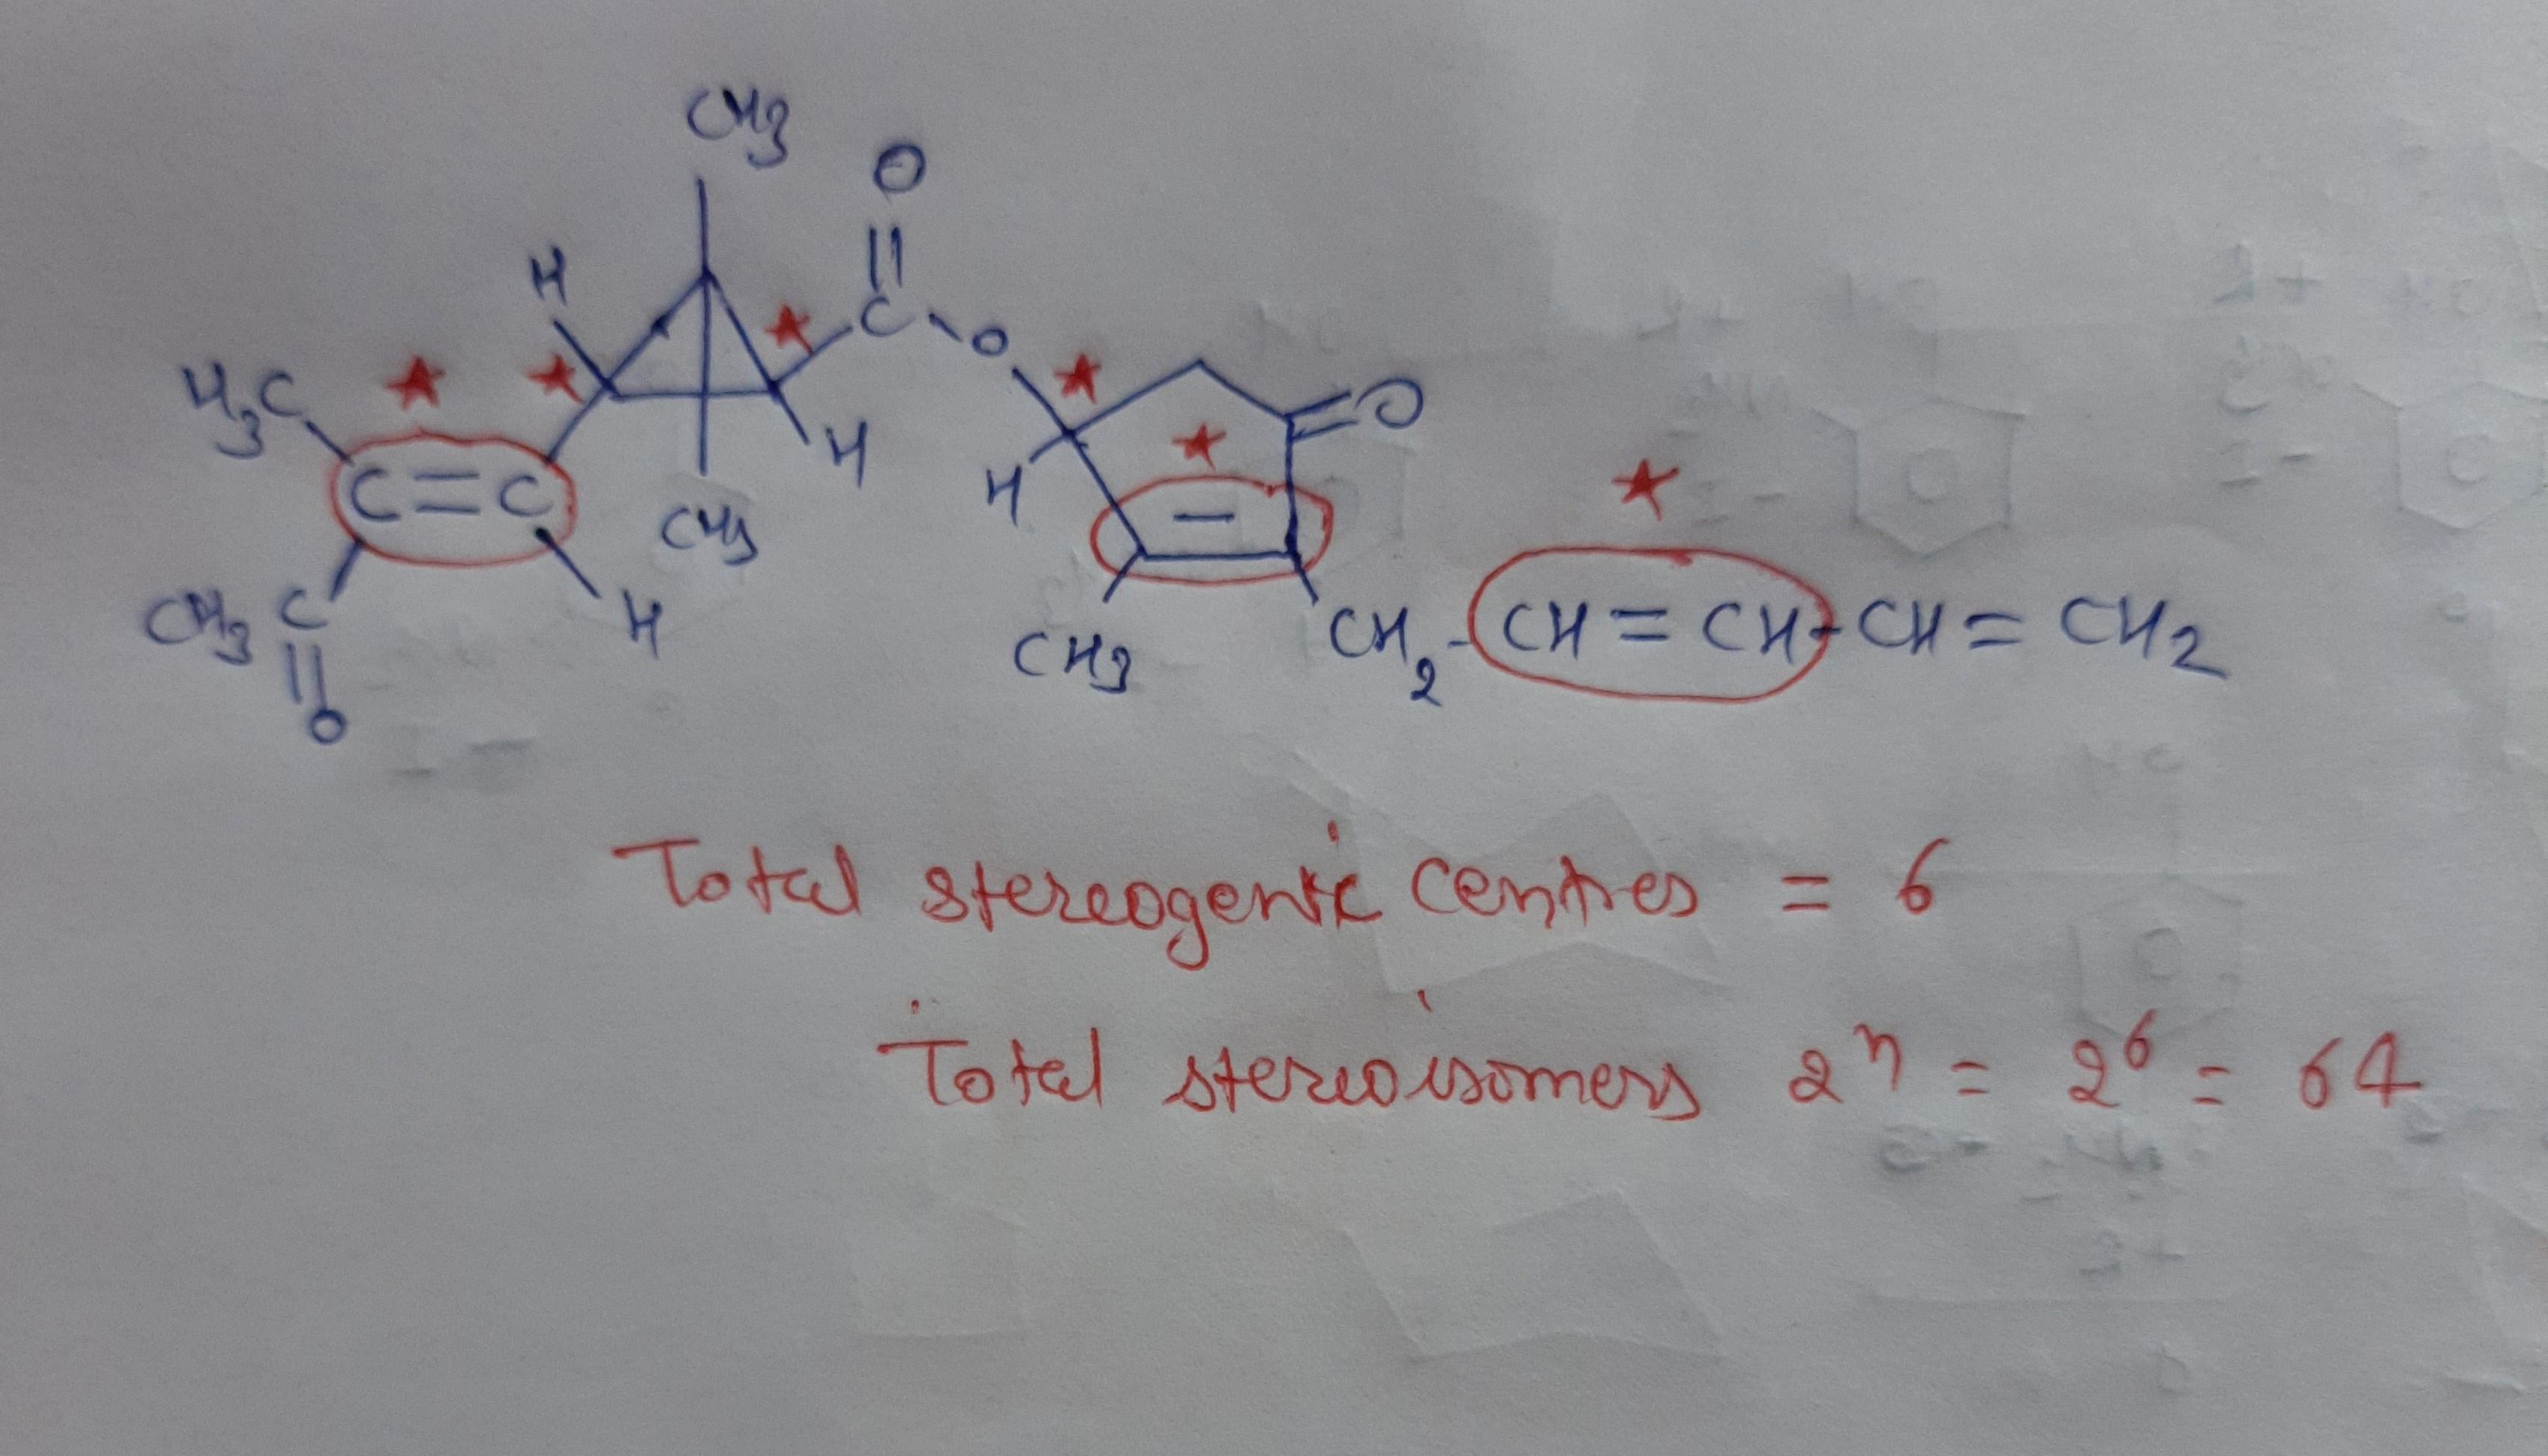 CH3
O
H
C
O
H3C
O
H
C=C
H
CH3
CH3 C
H
CH3
CH2-CH=CH-CH=CH2
O
Total stereogenic centres = 6
Total stereoisomers 2^n = 2^6 = 64